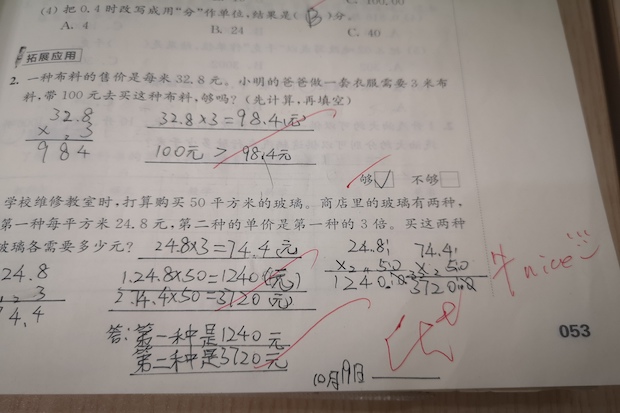 (4) 把0.4时改写成用“分”作单位,结果是(B)分。
A. 4 B. 24 C. 40
拓展应用
2. 一种布料的售价是每米32.8元。小明的爸爸做一套衣服需要3米布
料,带100元去买这种布料,够吗?(先计算,再填空)
32.8 32.8×3=98.4(元)
× 3
984 100元>98.4元
够☑ 不够□
学校维修教室时,打算购买50平方米的玻璃。商店里的玻璃有两种,
第一种每平方米24.8元,第二种的单价是第一种的3倍。买这两种
玻璃各需要多少元? 24.8×3=74.4元 24.8 74.4
24.8 1.24.8×50=1240(元) × 50 × 50
3 2.74.4×50=3720(元) 1240.0 3720.0
4.4
答:第一种是1240元
第二种是3720元
10月19日
牛nice
053